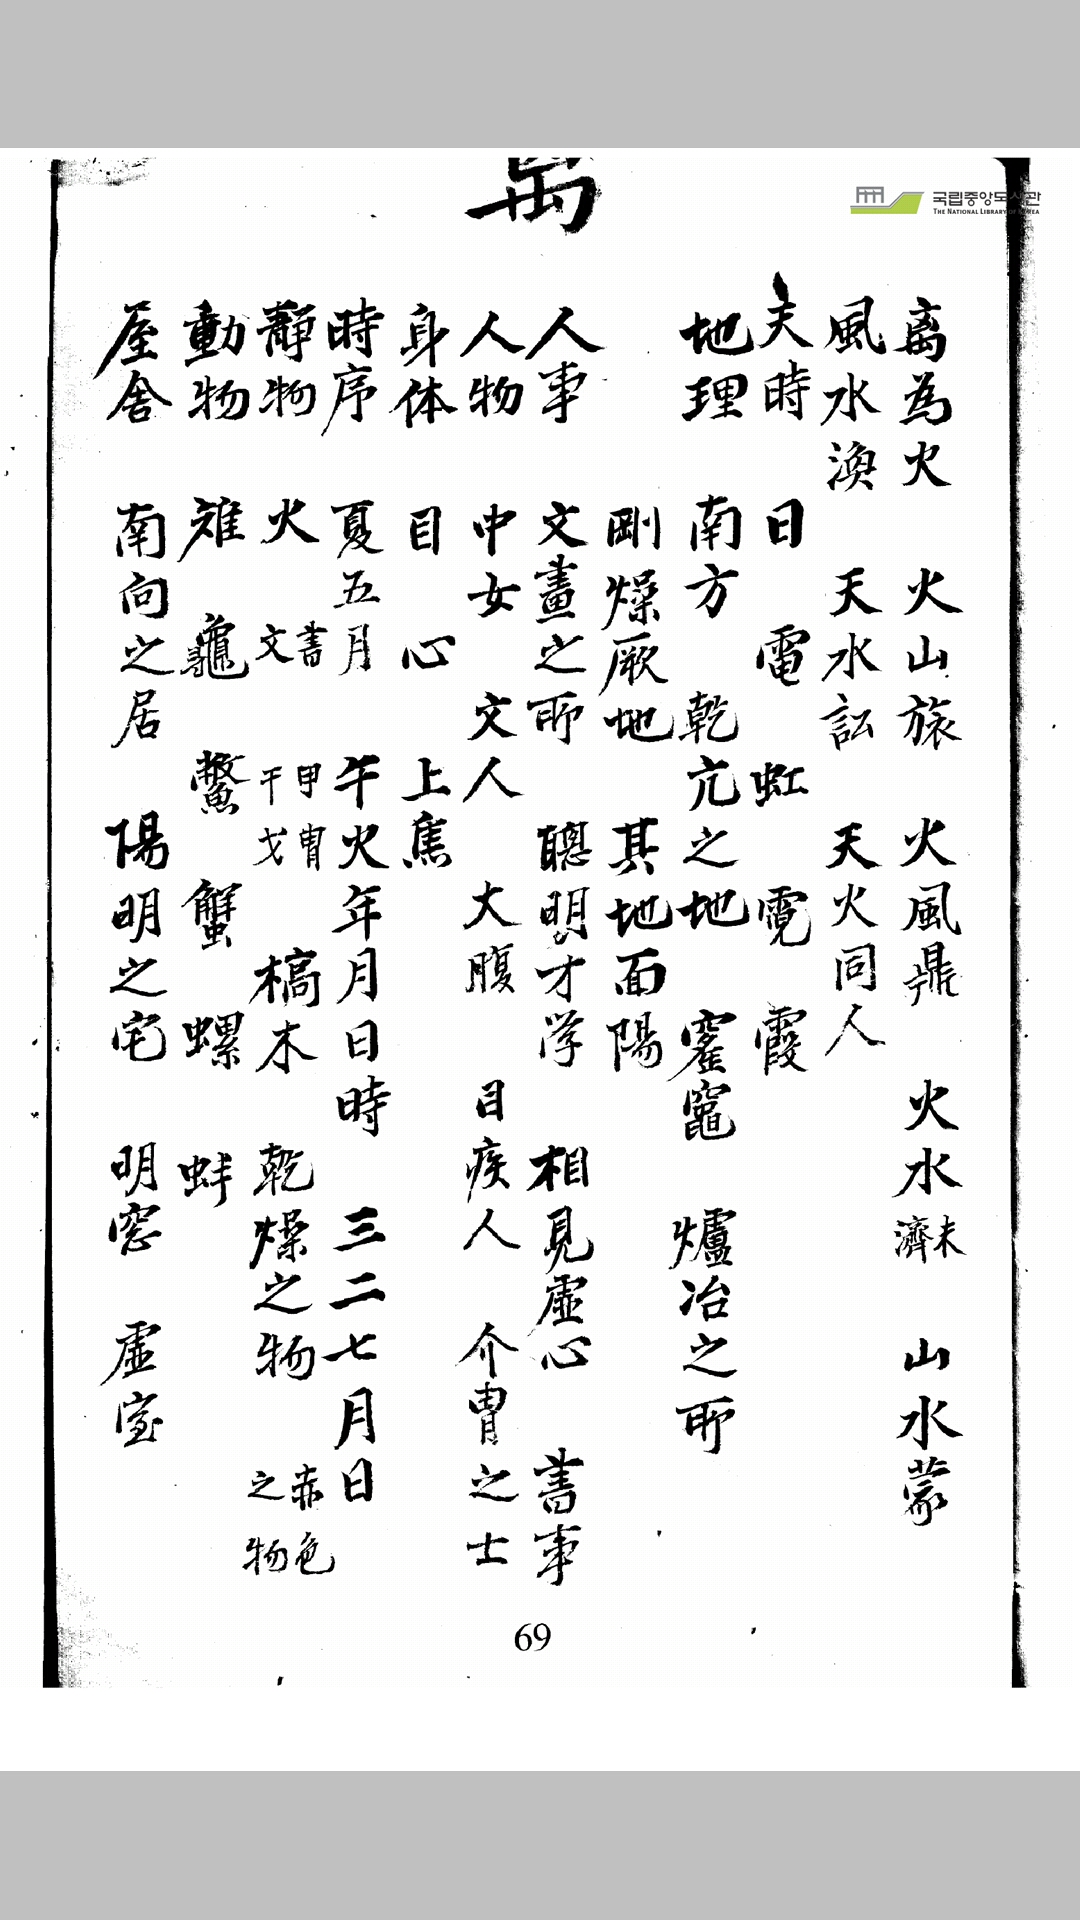 국립중앙도서관
THE NATIONAL LIBRARY OF KOREA
离為火 火山旅 火風鼎 火水未濟 山水蒙
風水渙 天水訟 天火同人
天時 日 電 虹 霓 霞
地理 南方 乾亢之地 窰竈 爐冶之所
剛燥厥地 其地面陽
人事 文畫之所 聰明才学 相見虛心 書事
人物 中女 文人 大腹 目疾人 介胄之士
身体 目 心 上焦
時序 夏五月 午火年月日時 三二七月日
靜物 火 書文 甲胄干戈 槁木 乾燥之物 赤色之物
動物 雉 龜 鱉 蟹 螺 蚌
屋舍 南向之居 陽明之宅 明窓 虛室
69